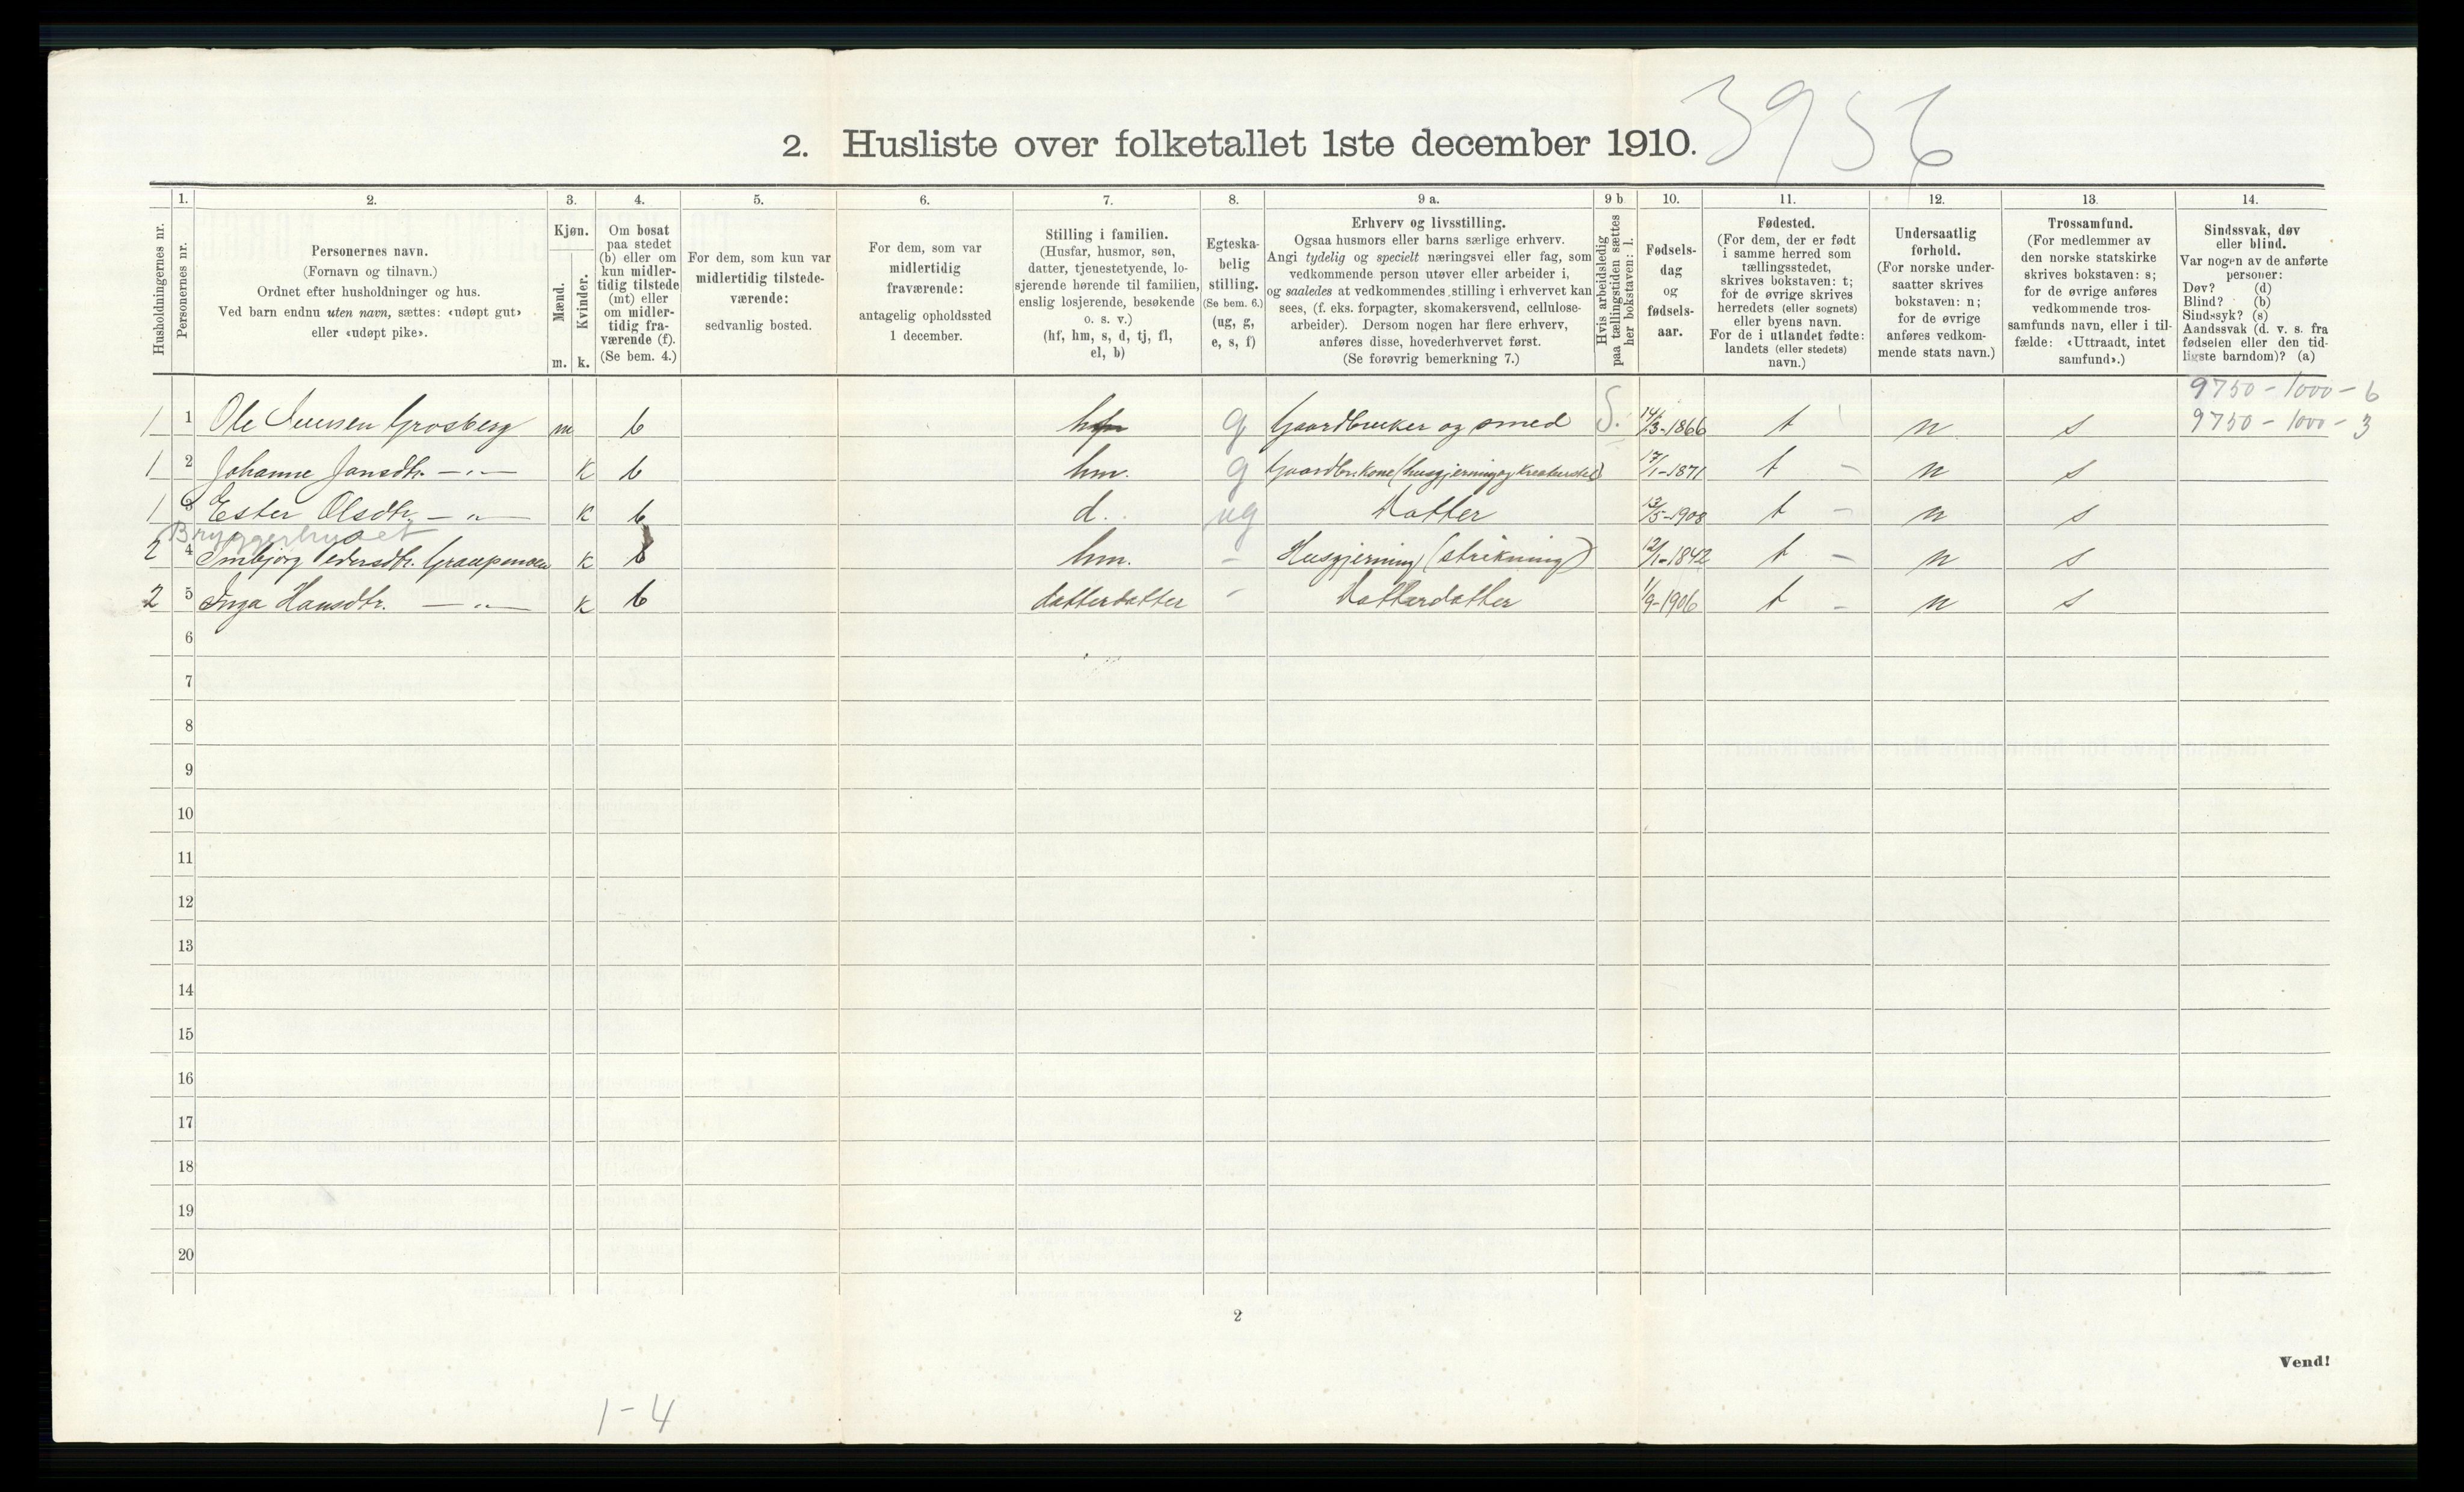 3956
2. Husliste over folketallet 1ste december 1910.
Husholdningernes nr.
1.
Personernes nr.
2.
Personernes navn.
(Fornavn og tilnavn.)
Ordnet efter husholdninger og hus.
Ved barn endnu uten navn, sættes: «udøpt gut»
eller «udøpt pike».
3.
Kjøn.
Mænd.
Kvinder.
m. k.
4.
Om bosat
paa stedet
(b) eller om
kun midler-
tidig tilstede
(mt) eller
om midler-
tidig fra-
værende (f).
(Se bem. 4.)
5.
For dem, som kun var
midlertidig tilstede-
værende:
sedvanlig bosted.
6.
For dem, som var
midlertidig
fraværende:
antagelig opholdssted
1 december.
7.
Stilling i familien.
(Husfar, husmor, søn,
datter, tjenestetyende, lo-
sjerende hørende til familien,
enslig losjerende, besøkende
o. s. v.)
(hf, hm, s, d, tj, fl,
el, b)
8.
Egteska-
belig
stilling.
(Se bem. 6.)
(ug, g,
e, s, f)
9 a.
Erhverv og livsstilling.
Ogsaa husmors eller barns særlige erhverv.
Angi tydelig og specielt næringsvei eller fag, som
vedkommende person utøver eller arbeider i,
og saaledes at vedkommendes stilling i erhvervet kan
sees, (f. eks. forpagter, skomakersvend, cellulose-
arbeider). Dersom nogen har flere erhverv,
anføres disse, hovederhvervet først.
(Se forøvrig bemerkning 7.)
9 b
Hvis arbeidsledig
paa tællingstiden sættes
her bokstaven: l.
10.
Fødsels-
dag
og
fødsels-
aar.
11.
Fødested.
(For dem, der er født
i samme herred som
tællingsstedet,
skrives bokstaven: t;
for de øvrige skrives
herredets (eller sognets)
eller byens navn.
For de i utlandet fødte:
landets (eller stedets)
navn.)
12.
Undersaatlig
forhold.
(For norske under-
saatter skrives
bokstaven: n;
for de øvrige
anføres vedkom-
mende stats navn.)
13.
Trossamfund.
(For medlemmer av
den norske statskirke
skrives bokstaven: s;
for de øvrige anføres
vedkommende tros-
samfunds navn, eller i til-
fælde: «Uttraadt, intet
samfund».)
14.
Sindssvak, døv
eller blind.
Var nogen av de anførte
personer:
Døv? (d)
Blind? (b)
Sindssyk? (s)
Aandssvak (d. v. s. fra
fødselen eller den tid-
ligste barndom)? (a)
9750 - 1000 - 6
1 1 Ole Grosberg m b hf g Gaardbruker og smed S. 14/3-1866 t n s 9750 - 1000 - 3
1 2 Johanne Jansdtr. — „ — k b hm. g Gaardbr.kone (husgjerning og kreaturstel) 17/1-1871 t - n s
1 3 Ester Olsdtr. — „ — k b d. ug Datter 13/5-1908 t - n s
Bryggerhuset
2 4 Pedersdtr. k b hm. - Husgjerning (strikning) 12/1-1842 t - n s
2 5 Inga Hansdtr. — „ — k b datterdatter - Datterdatter 1/9-1906 t - n s
6
7
8
9
10
11
12
13
14
15
16
17
18
19
20
2
Vend!
1-4